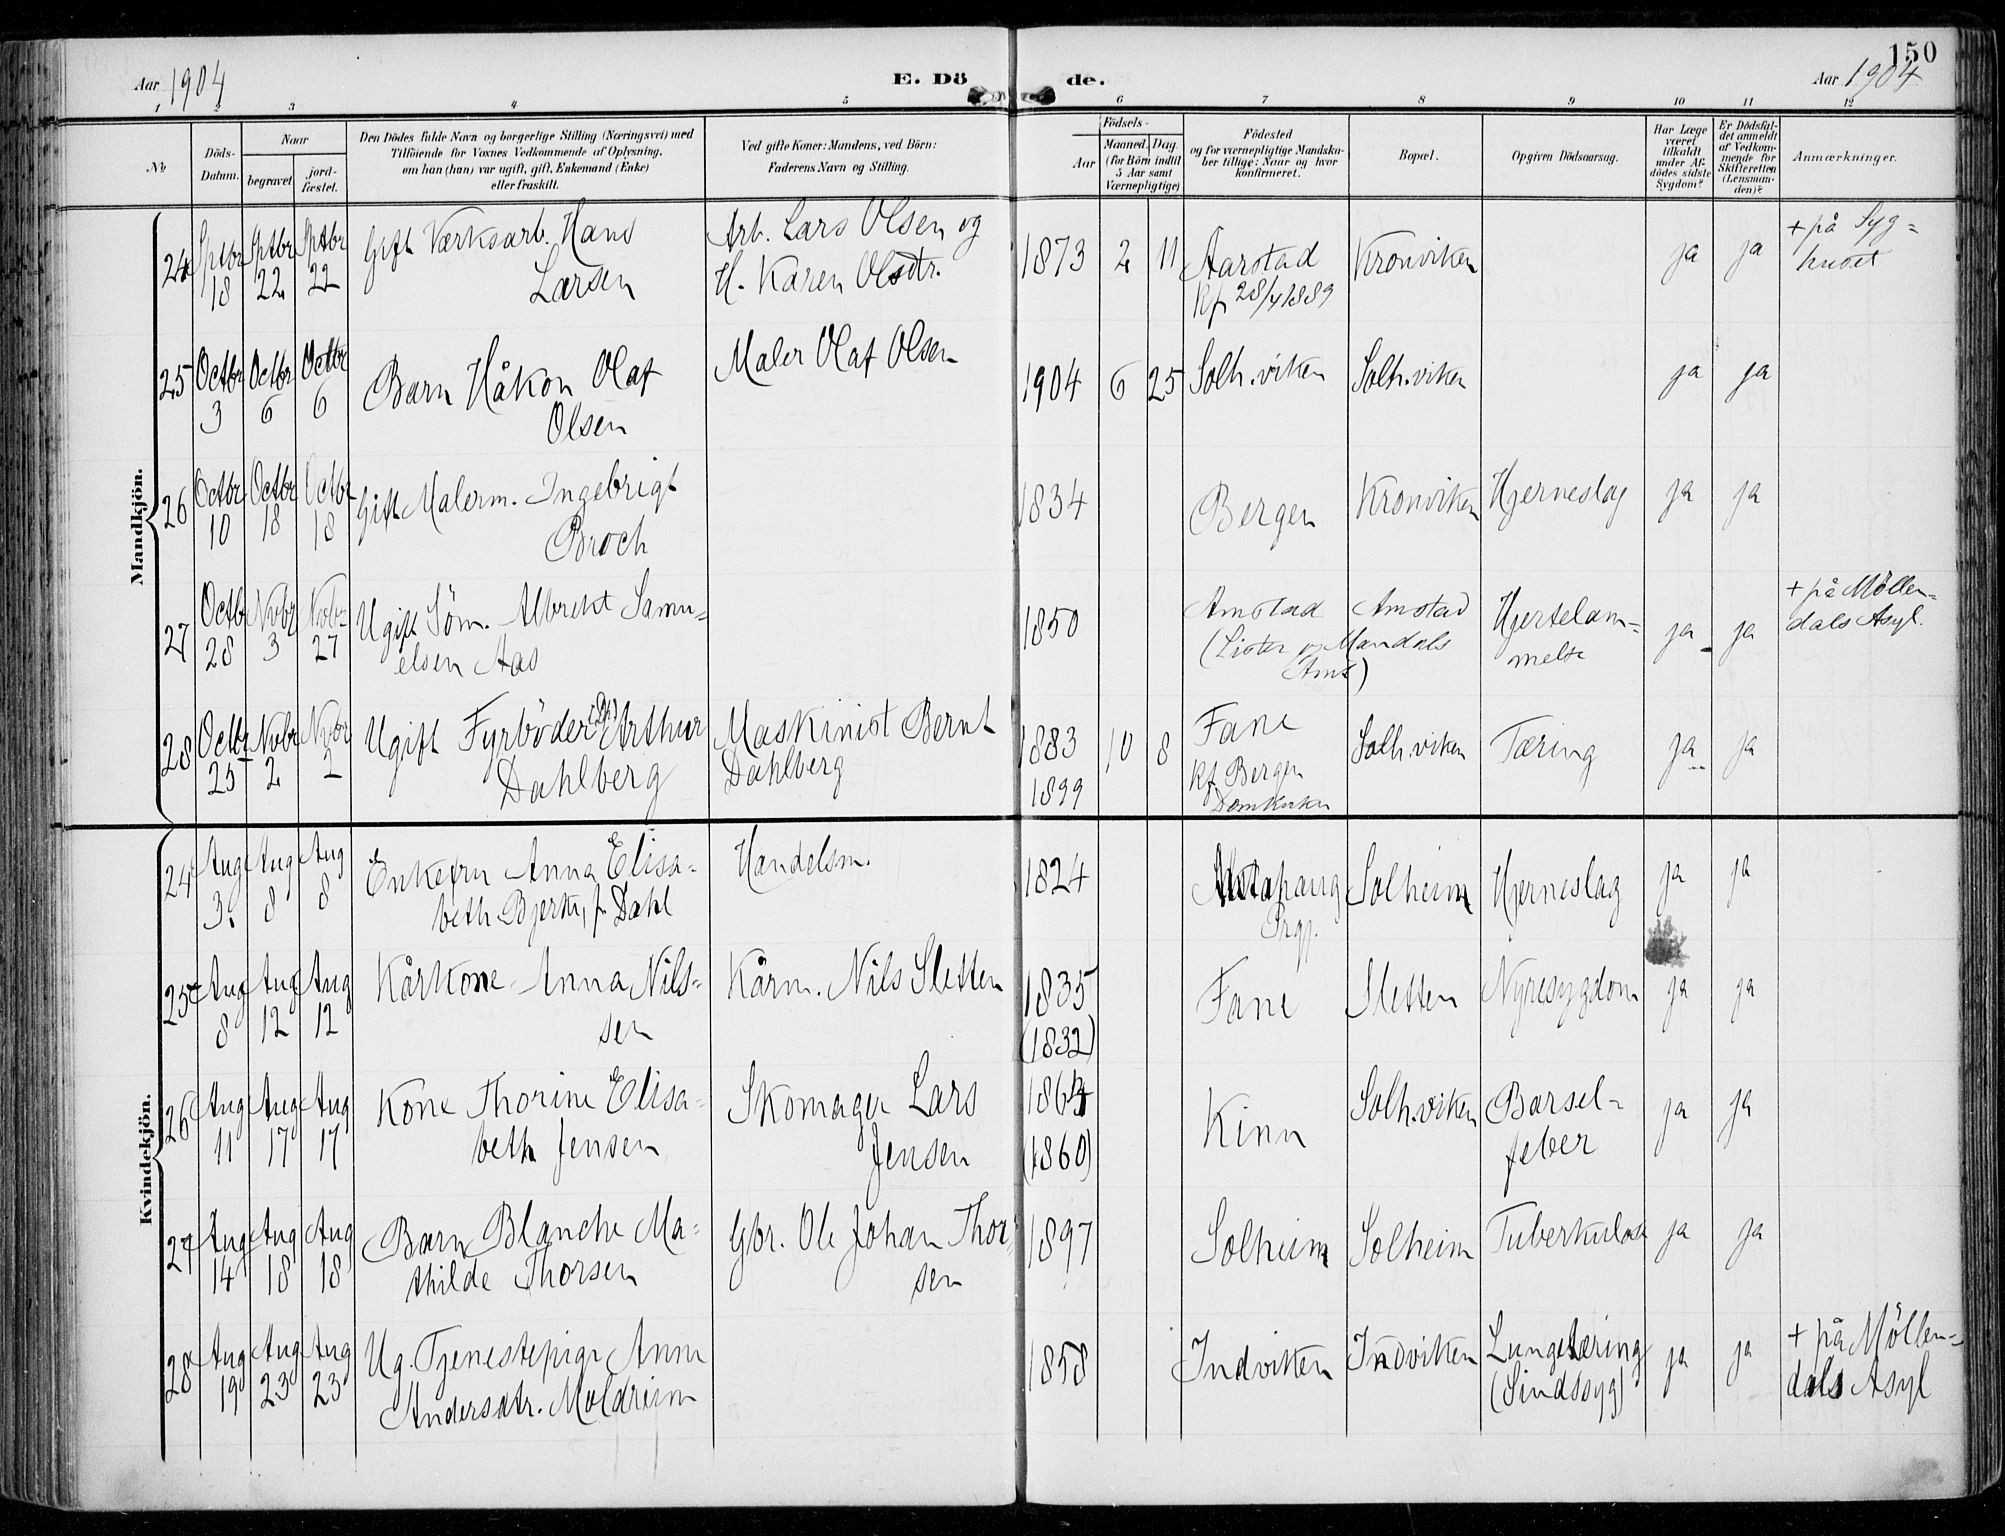 150
Aar 1904
E. Dö de.
Aar 1904
1 2 3 4 5 6 7 8 9 10 11 12
No
Döds-
Datum.
Naar
begravet
jord-
fæstet.
Den Dödes fulde Navn og borgerlige Stilling (Næringsvei) med
Tilföiende for Voxnes Vedkommende af Oplysning,
om han (hun) var ugift, gift, Enkemand (Enke)
eller fraskilt.
Ved gifte Koner: Mandens, ved Börn:
Faderens Navn og Stilling.
Födsels-
Aar
Maaned. Dag.
(for Börn indtil
5 Aar samt
Værnepligtige)
Födested
og for værnepligtige Mandska-
ber tillige: Naar og hvor
konfirmeret.
Bopæl.
Opgiven Dödsaarsag.
Har Læge
været
tilkaldt
under Af-
dödes sidste
Sygdom?
Er Dödsfal-
det anmeldt
af Vedkom-
mende for
Skifteretten
(Lensman-
den)?
Anmærkninger.
Mandkjön.
24 Sptbr 18 Sptbr 22 Sptbr 22 Gift Værksarb. Hans
Larsen
Arb. Lars Olsen og
H. Karen Olsdtr.
1873 2 11 Aarstad
Kf 28/4 1889
Kronviken ja ja + på Syg=
huset
25 Octbr 3 Octbr 6 Octbr 6 Barn Håkon Olaf
Olsen
Maler Olaf Olsen
1904 6 25 Solh.viken Solh.viken ja ja
26 Octbr 10 Octbr 18 Octbr 18 Gift Malerm. Ingebrigt
Broch
1834 Bergen Kronviken Hjerneslag ja ja
27 Octb 28 Novbr 3 Novbr 27 Ugift Söm. Albrekt Samu=
elsen Aas
1850 Amstad Amstad
(Lister og Mandals
Amt)
Hjertelam=
melse
ja ja + på Möllen=
dals Asyl.
28 Octbr 25 Nvbr 2 Nvbr 2 Ugift Fyrböder Arthur
Dahlberg
Maskinist Bernt
Dahlberg
1883 10 8 Fane
1899 Kf. Bergen
Domkirke
Solh.viken Tæring ja ja
Kvindekjön.
24 Aug 3. Aug 8 Aug 8 Enkefru Anna Elisa-
beth Bjerke, f. Dahl
Handelsm.
1824 Prgj. Solheim Hjerneslag ja ja
25 Aug 8 Aug 12 Aug 12 Kårkone Anna Nils-
sen
Kårm. Nils Sletten
1835
(1832)
Fane Sletten Nyresygdom ja ja
26 Aug 11 Aug 17 Aug 17 Kone Thorine Elisa-
beth Jensen
Skomager Lars
Jensen
(1860)
Kinn Solh.viken Barsel-
feber
ja ja
27 Aug 14 Aug 18 Aug 18 Barn Blanche Ma-
thilde Thorsen
Gbr. Ole Johan Thor-
sen
1897 Solheim Solheim Tuberkulose ja ja
28 Aug 19 Aug 23 Aug 23 Ug. Tjenestepige Anna
Andersdtr. Moldreim
1858 Indviken Indviken Lungetæring
(Sindssyg)
ja ja + på Möllen=
dals Asyl